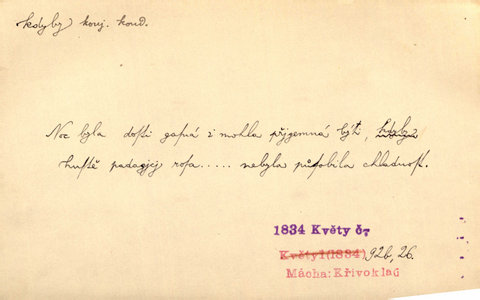 kdyby konj. kond.
Noc byla dosti gasná i mohla přjgemná býti, kdyby
hustě padagjcj rosa..... nebyla působila chladnost.
1834 Květy č7
Květy I (1834) 92b, 26.
Mácha: Křivoklad